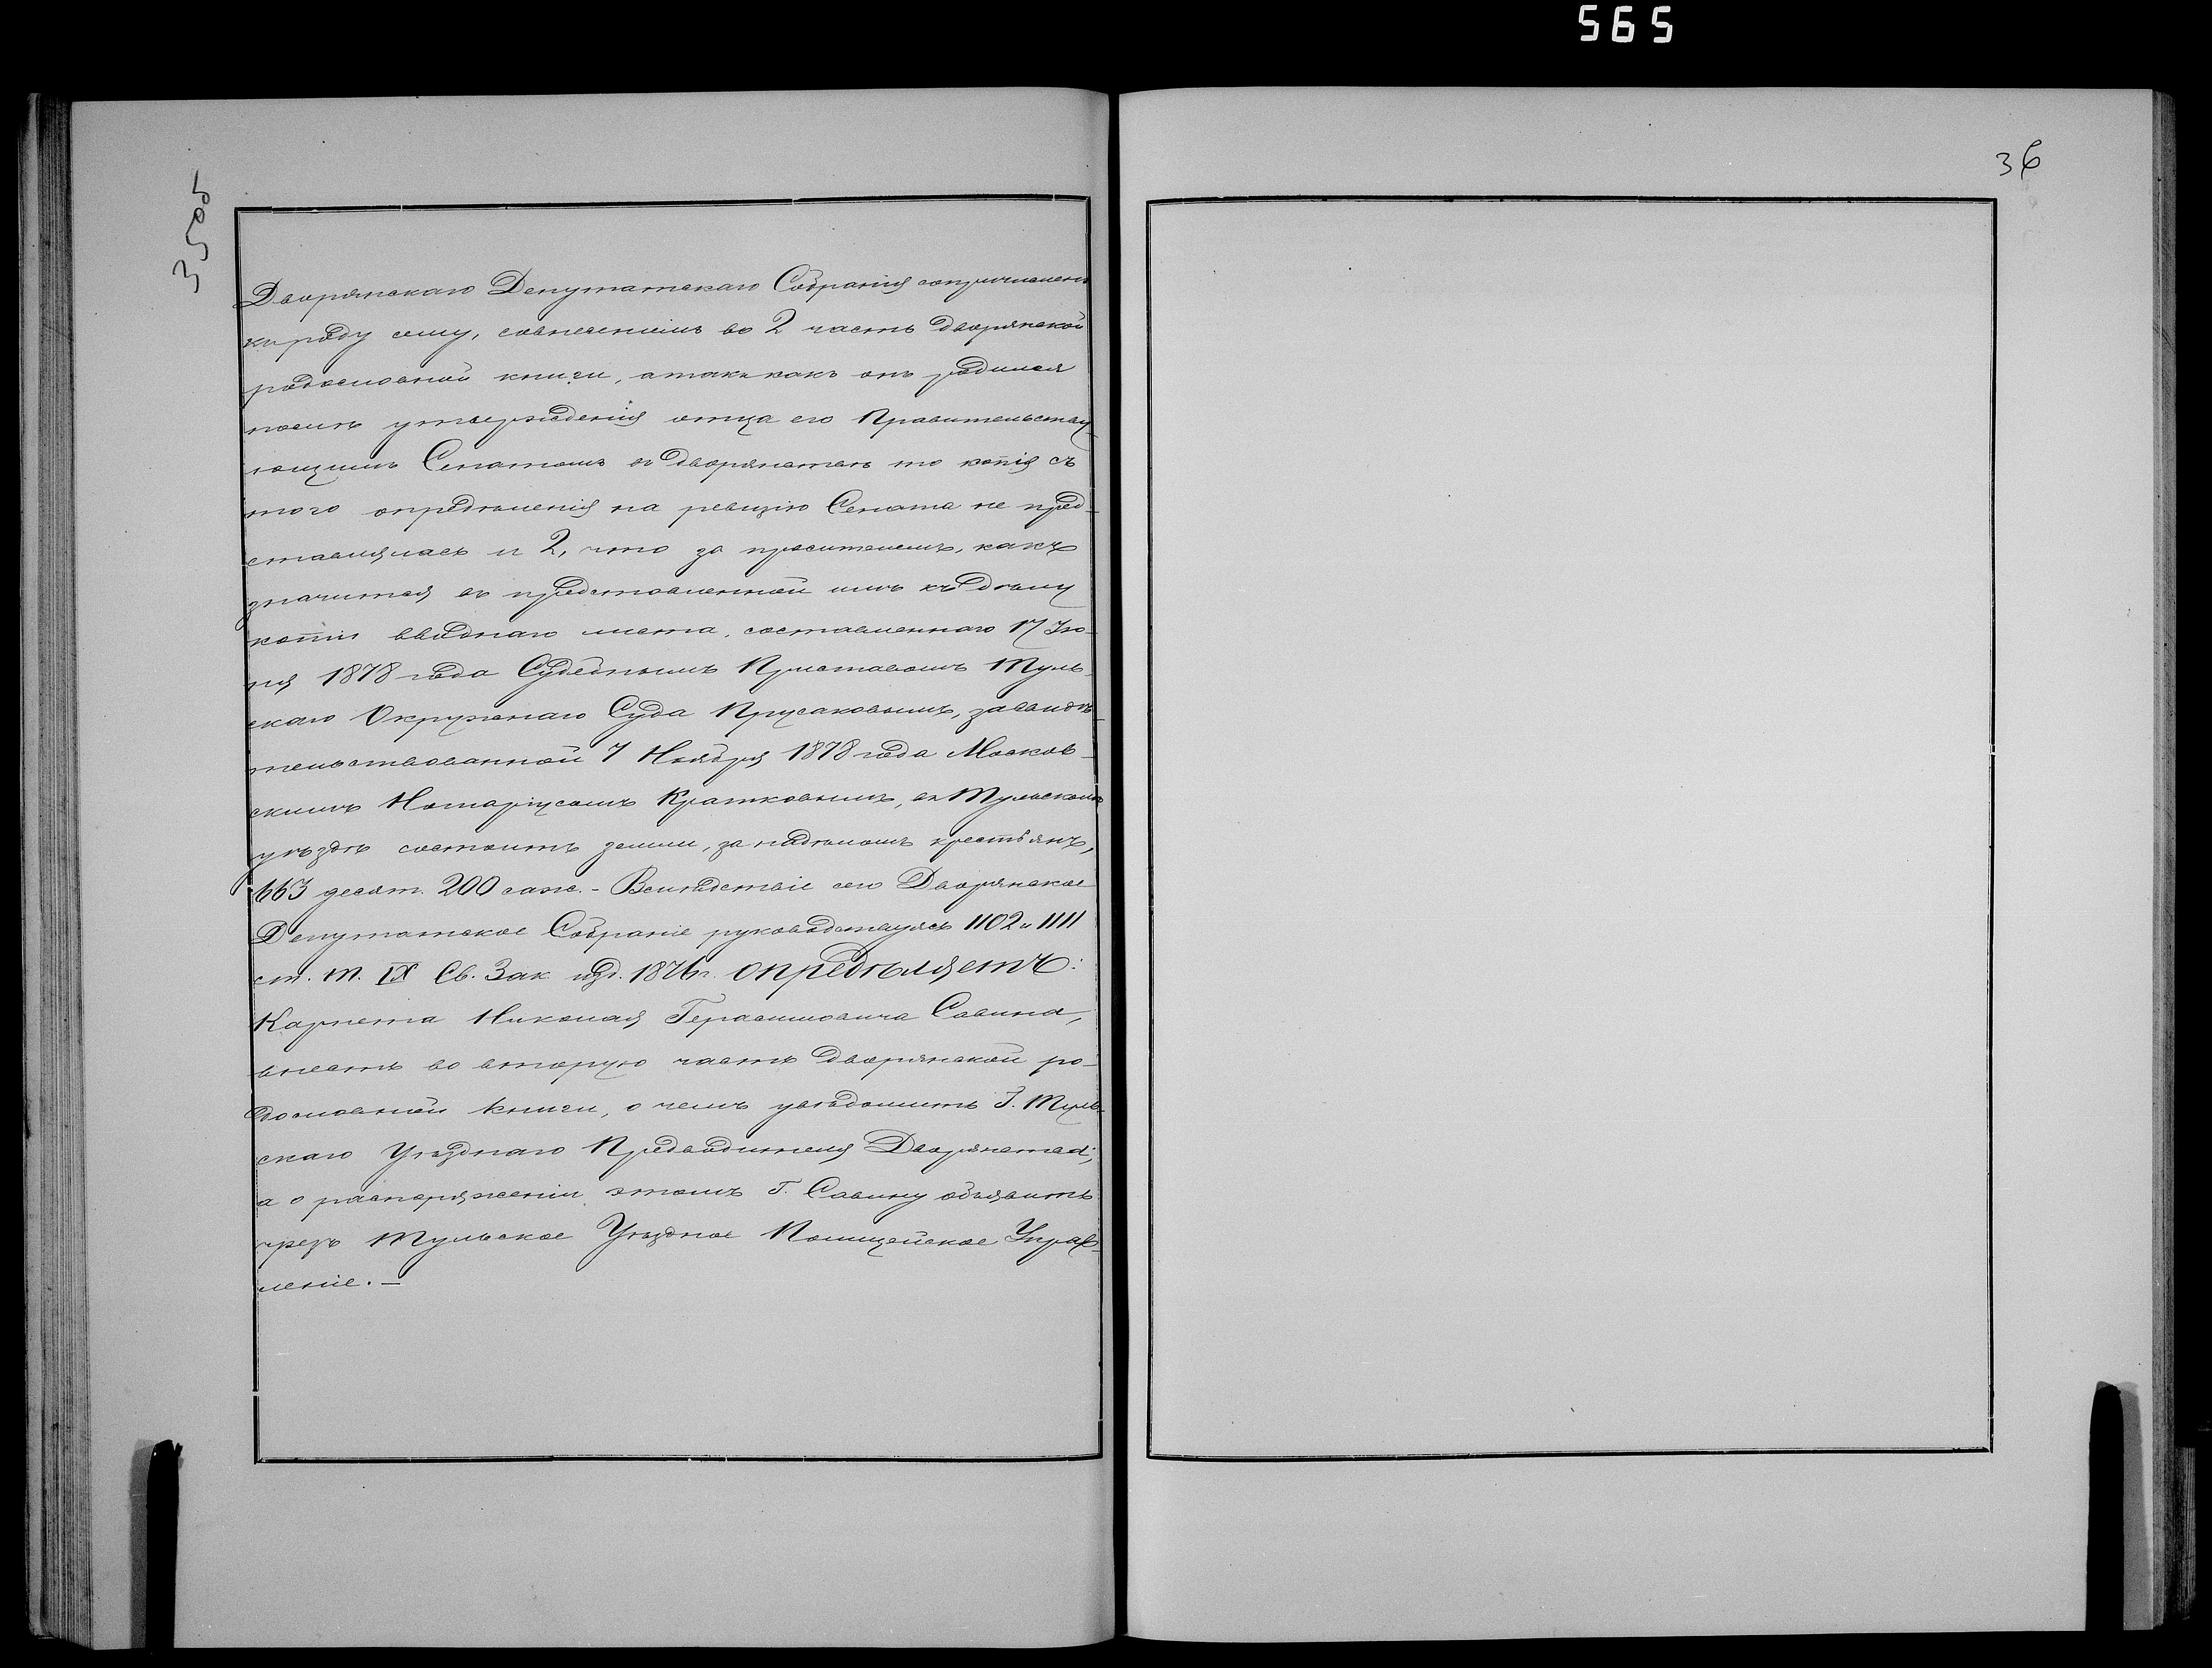 565
35об
36
Дворянскаго Депутатскаго Собранія сопричисленъ
къ роду сему, совнесеніемъ во 2 часть дворянской
родословной книги, а такъ какъ онъ родился
послѣ утвержденія отца его Правительству-
ющимъ Сенатомъ въ дворянствѣ то копія съ
того опредѣленія на ревизію Сената не пред-
ставлялась и 2, что за просителемъ, какъ
значится въ представленной имъ къ дѣлу
копіи вводнаго листа, составленнаго 17 Ію-
ня 1878 года Судебнымъ Приставомъ Туль-
скаго Окружнаго Суда Прусаковымъ, засвидѣ-
тельствованной 7 Ноября 1878 года Москов-
скимъ Нотаріусомъ Кратковымъ, въ Тульскомъ
уѣздѣ состоитъ земли, за надѣломъ крестьянъ,
663 десят. 200 саж. - Вслѣдствіе сего Дворянское
Депутатское Собраніе руководствуясь 1102 и 1111
ст. т. IX Св. Зак. изд. 1876 г. опредѣляетъ:
Карнета Николая Герасимовича Савина,
внесть во вторую часть дворянской ро-
дословной книги, о чемъ увѣдомить Г. Туль-
скаго Уѣзднаго Предводителя Дворянства;
а о распоряженіи этомъ Г. Савину объявить
чрезъ Тульское Уѣздное Полицейское Управ-
леніе. —